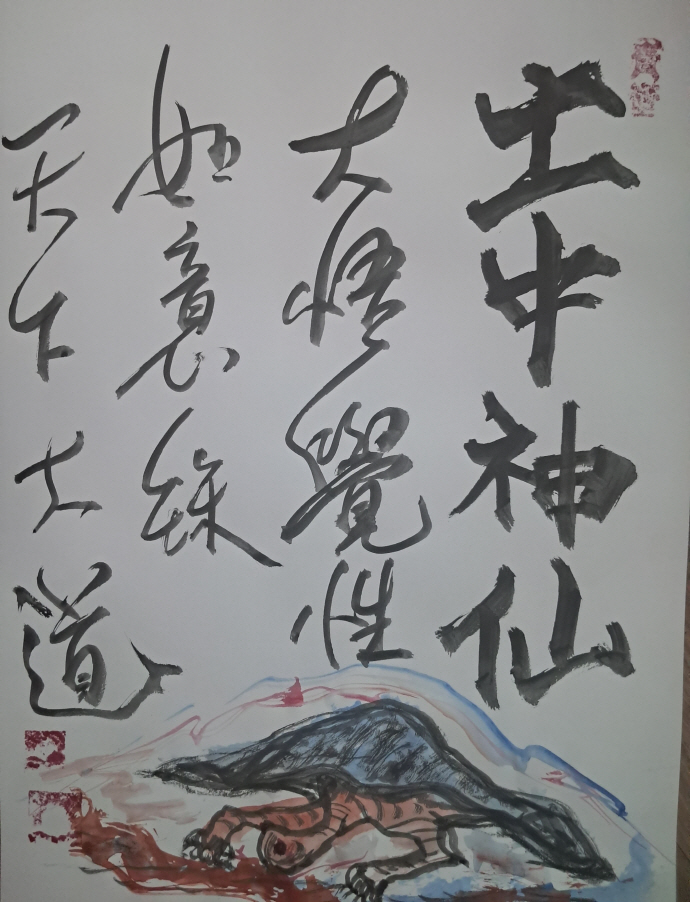 土中神仙
大悟覺性
如意
天下大道